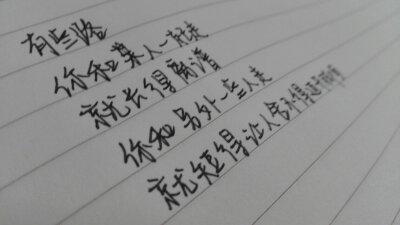 有些路
你和某人一起走
就长得离谱
你和另外一些人走
就短得让人舍不得